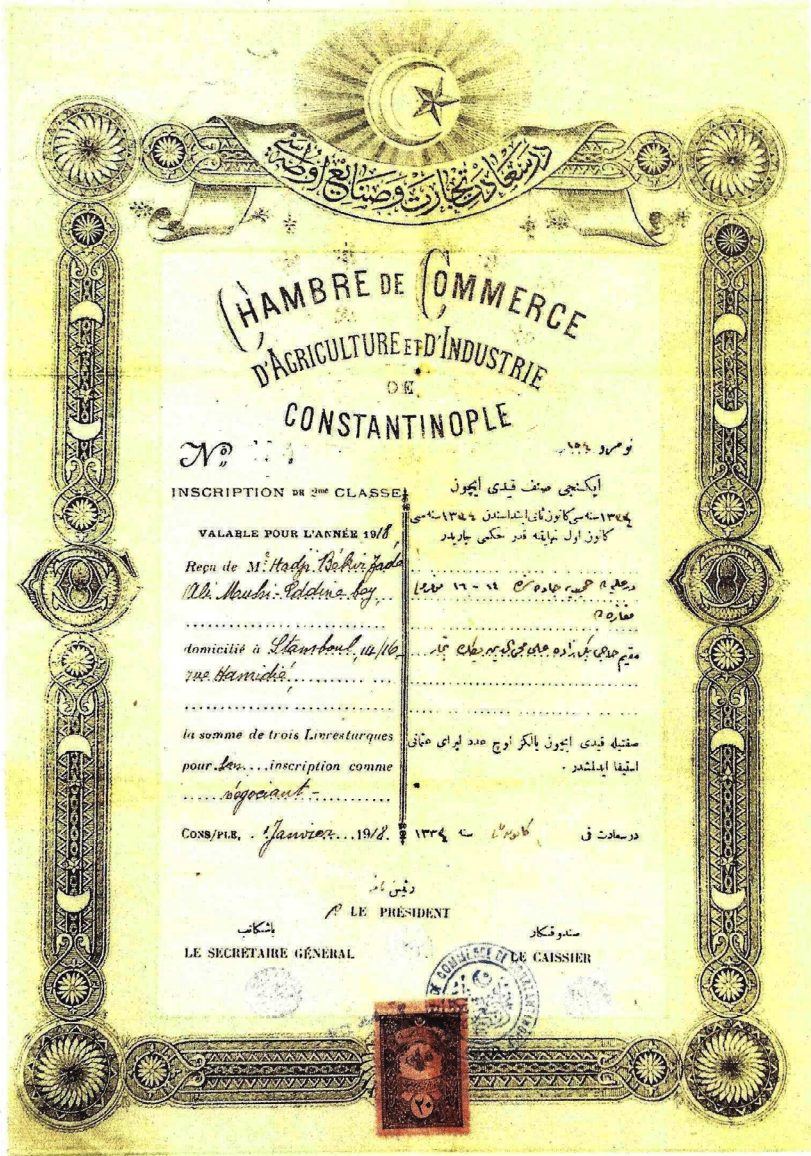 درسعادت تجارت وصنايع اوطه سى
CHAMBRE DE COMMERCE
D'AGRICULTURE ET D'INDUSTRIE
DE
CONSTANTINOPLE
Nº
نومرو
INSCRIPTION DE 2me CLASSE
VALABLE POUR L'ANNÉE 1918
Reçu de Mr Hadji Békir Zadé
Ali Mouhi-Eddine bey
domicilié à Stamboul, 14/16
rue Hamidié,
la somme de trois Livres turques
pour son inscription comme
négociant -
CONS/PLE, 1 Janvier 1918.
ايكنجى صنف قيدى ايچون
١٣٣٤ سنه سى كانون ثانى ابتداسندن ١٣٣٤ سنه سى
كانون اول نهايتنه قدر حكمى جاريدر
جاده ١٤ - ١٦
مقيم حاجى بكر زاده على محى الدين بك
صنفيله قيدى ايچون يالكز اوچ عدد ليراى عثمانى
استيفا ايدلمشدر .
درسعادت فى سنه ١٣٣٤
رئيس
LE PRÉSIDENT
باشكاتب
LE SECRÉTAIRE GÉNÉRAL
صندوقكار
LE CAISSIER
COMMERCE DE
٢٠